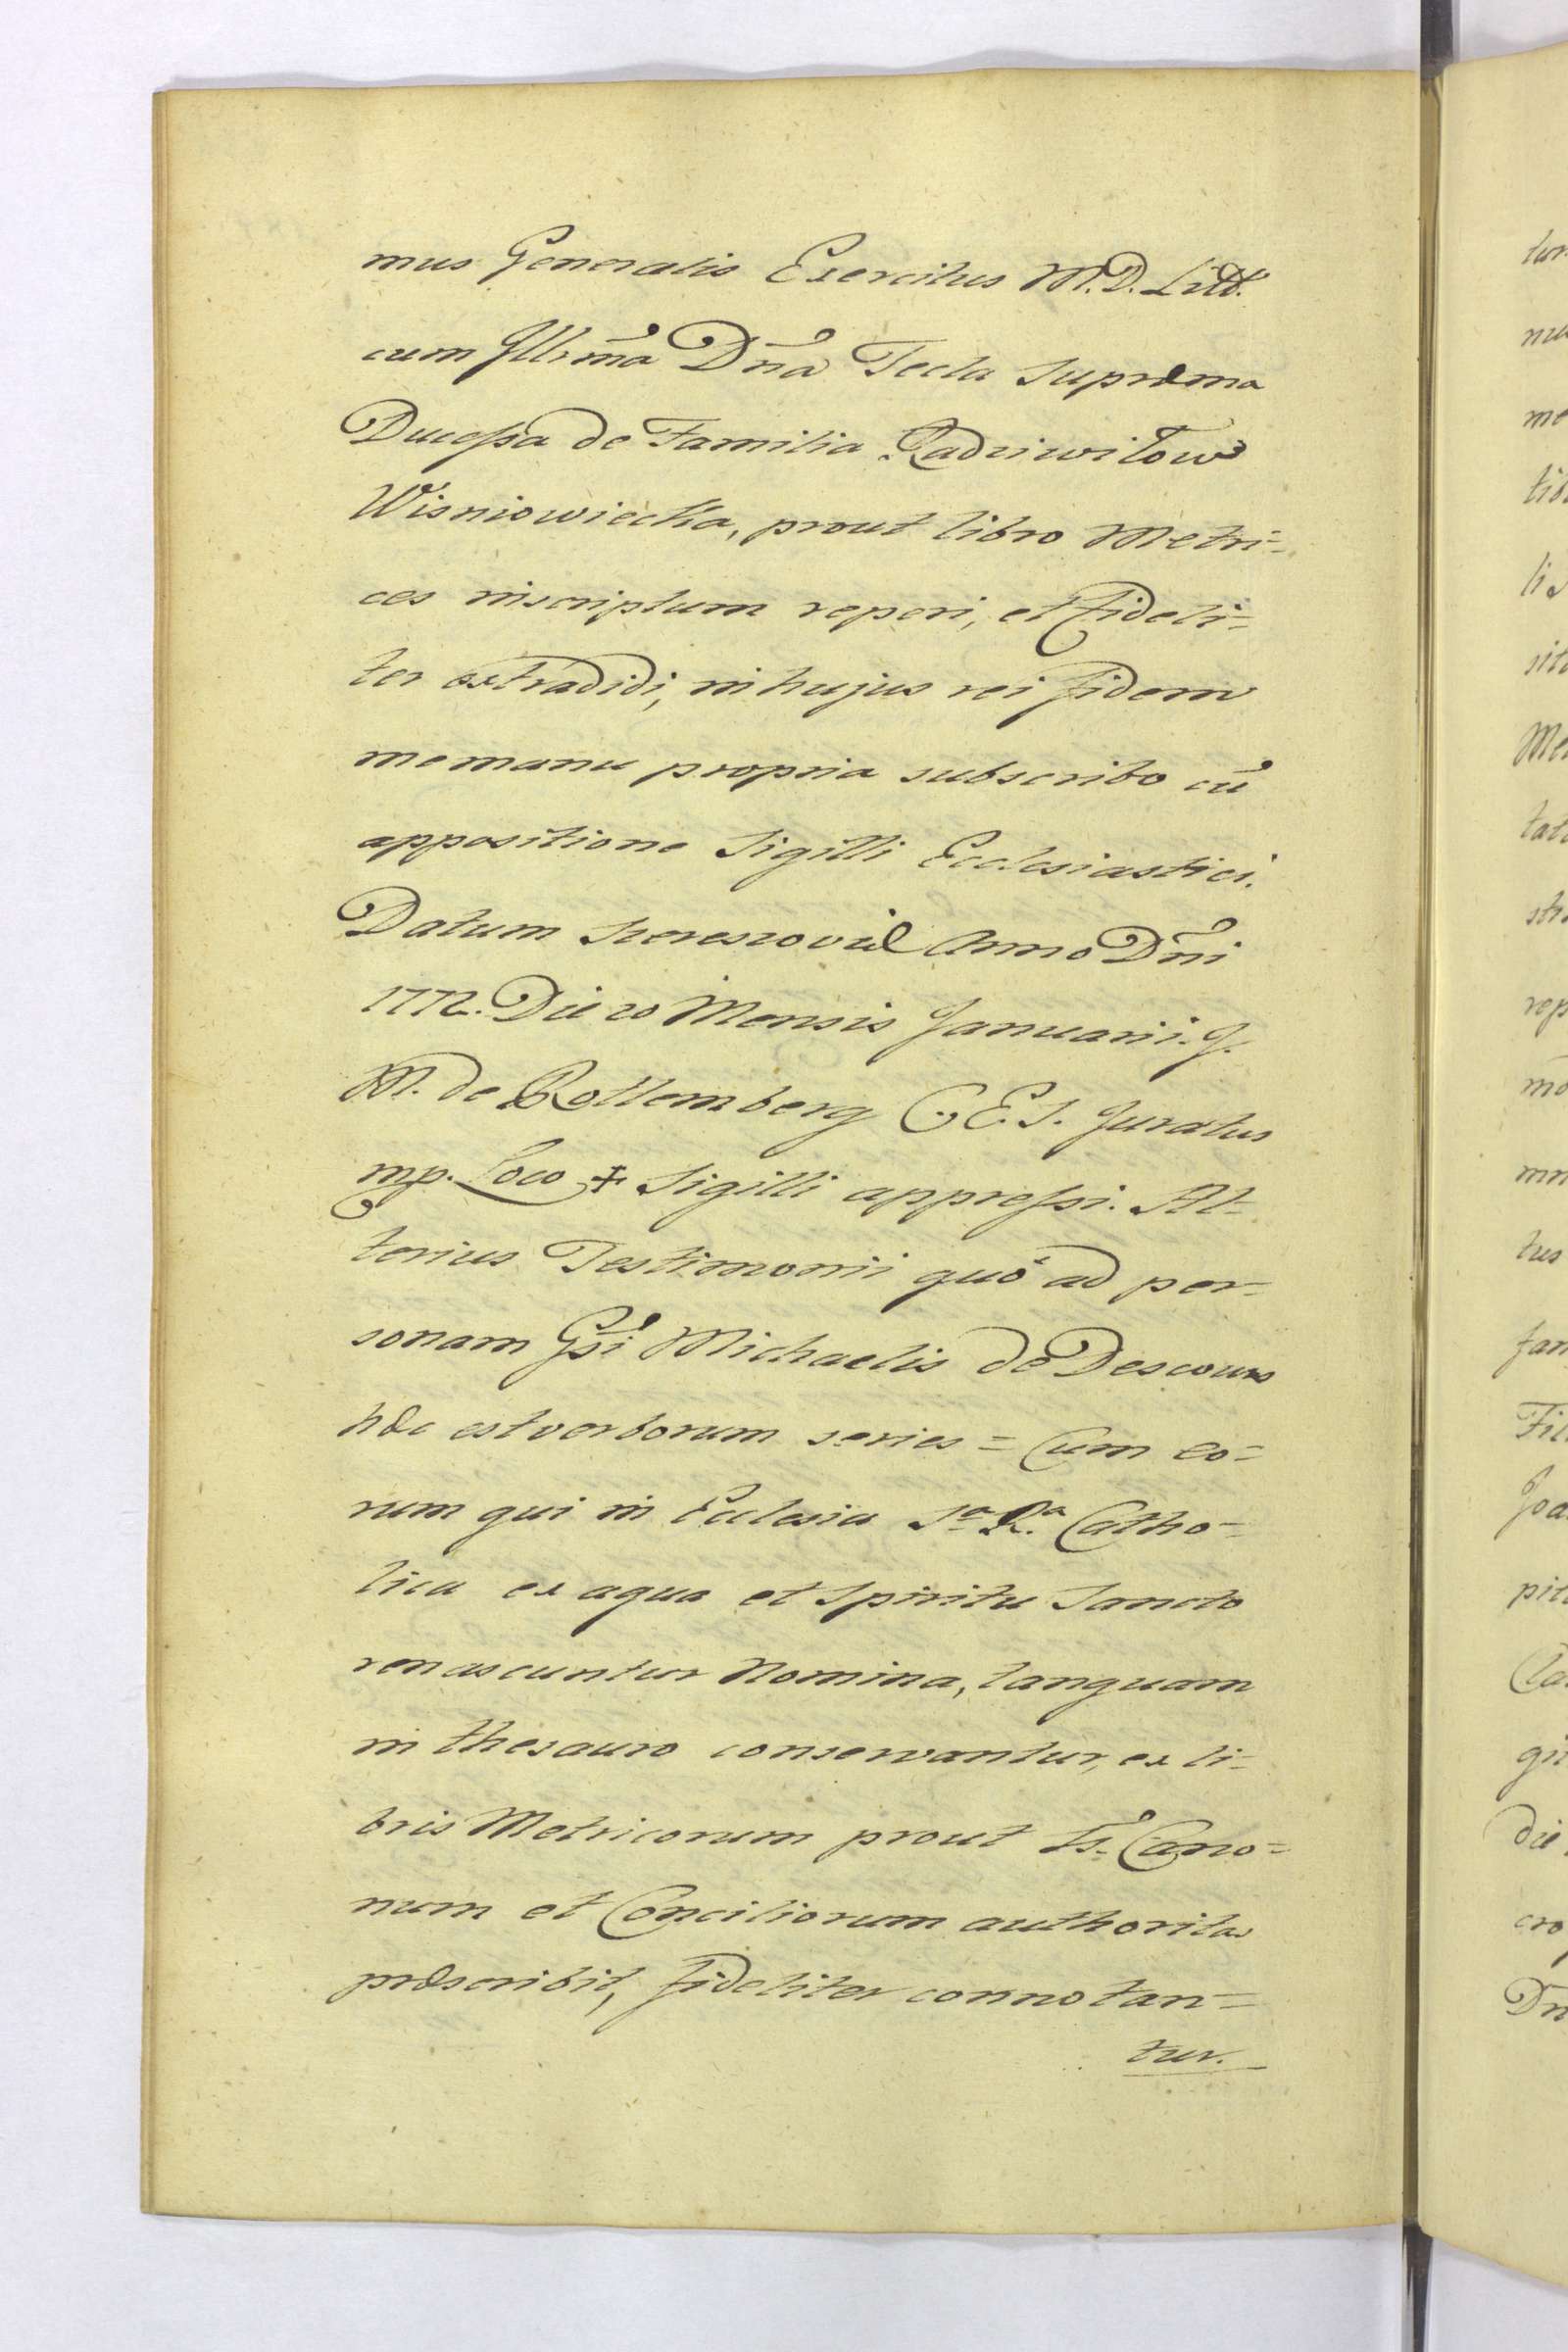 mus Generalis Exercitus M.D. Litt.
cum Illrm̃a Dña Tecla Supræma
Ducessa de Familia Radziwiłow
Wisniowiecka, prout libro Metri=
ces inscriptum reperi, et Fideli=
ter extradidi, in hujus rei fidem
me manu propria subscribo cũ
appositione Sigilli Ecclesiastici.
Datum Szereszoviæ Anno Dñi
1772. Die 20 Mensis Januarii. J.
M. de Rottemberg C. E. S. Juratus
mp. Loco + Sigilli appressi. Al=
terius Testimonii quo ad per=
sonam Gsi Michaelis de Descours
hæc est verborum series = Cum eo=
rum qui in Ecclesia Sa Ra Catho=
lica ex aqua et Spiritu Sancto
renascuntur Nomina, tanquam
in thesauro conservantur, ex li=
bris Metricorum prout Ss. Cano=
num et Conciliorum authoritas
præscribit, fideliter connotan=
tur.